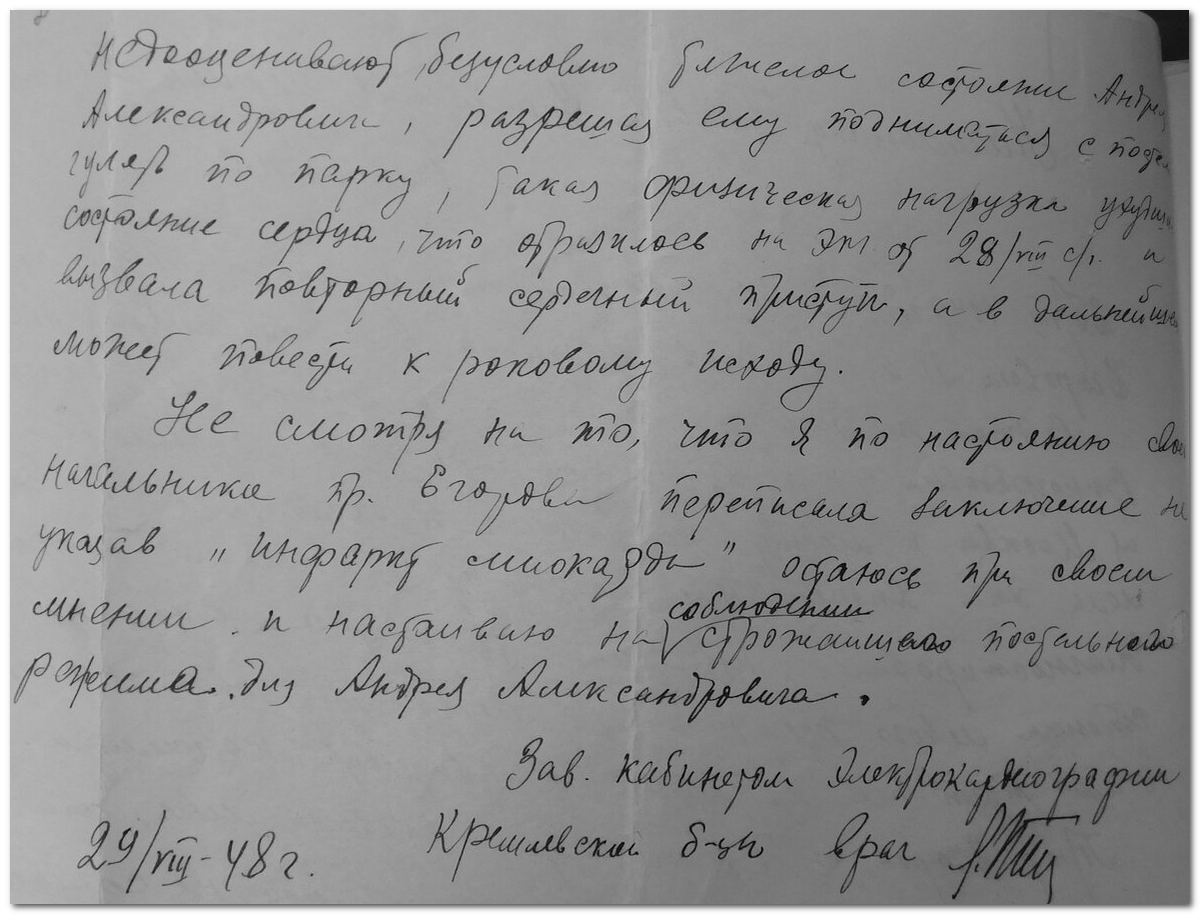 недооценивают, безусловно тяжелое состояние Андрея
Александровича, разрешая ему подниматься с посте
гулять по парку, такая физическая нагрузка ухудши
состояние сердца, что отразилось на ЭКГ от 28/VIII с/г. и
вызвала повторный сердечный приступ, а в дальнейше
может повести к роковому исходу.
Не смотря на то, что я по настоянию свое
начальника пр. Егорова переписала заключение не
указав „инфаркт миокарда” остаюсь при своем
соблюдении
мнении и настаиваю на строжайшего постельного
режима для Андрея Александровича.
Зав. кабинетом электрокардиографии
Кремлевской б-цы врач
29/VIII-48 г.